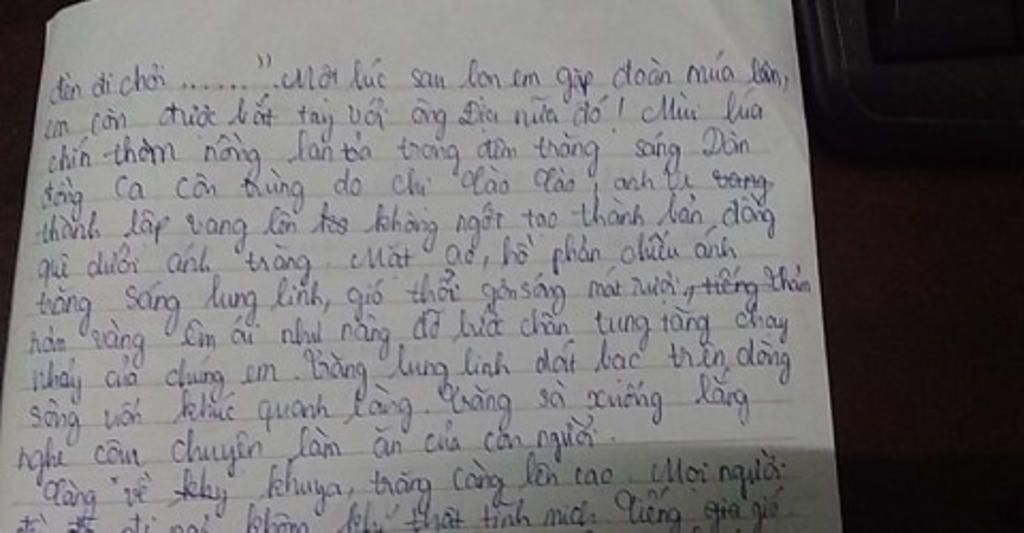 đèn đi chơi ......." Một lúc sau bọn em gặp đoàn múa lân,
em còn được bắt tay với ông Địa nữa đó! Mùi lúa
chín thơm nồng lan tỏa trong đêm trăng sáng Dàn
đồng ca côn trùng do chị Cào Cào, anh vang
thành lập vang lên không ngớt tạo thành bản đồng
quê dưới ánh trăng. Mặt ao, hồ phản chiếu ánh
trăng sáng lung linh, gió thổi gợn sóng mát rượi, tiếng
vang êm ái như nâng đỡ bước chân tung tăng chạy
nhảy của chúng em. Trăng lung linh dát bạc trên dòng
sông uốn khúc quanh làng. Trăng sà xuống lắng
nghe câu chuyện làm ăn của con người.
Càng về khuya, trăng càng lên cao. Mọi người
đi không khí thật tĩnh mịch Tiếng gió